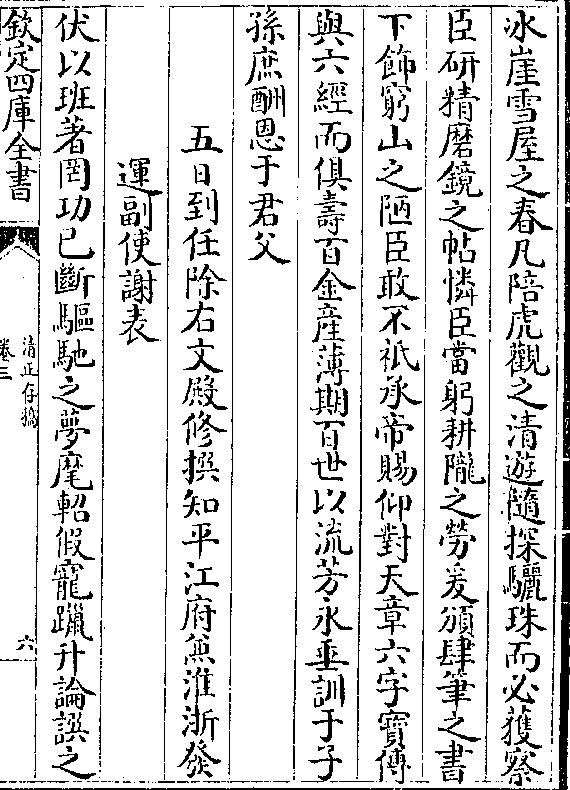 冰崖雪屋之春凡陪虎觀之清遊隨探驪珠而必獲察
臣研精磨鏡之帖憐臣當躬耕隴之勞爰頒肆筆之書
下飾窮山之陋臣敢不祗承帝賜仰對天章六字寳傳
與六經而俱壽百金産薄期百世以流芳永垂訓于子
孫庶酬恩于君父
五日到任除右文殿修撰知平江府兼淮浙發
運副使謝表
伏以班著罔功已斷驅馳之夢麾軺假寵躐升論譔之
欽定四庫全書
清正存稿
卷三
六